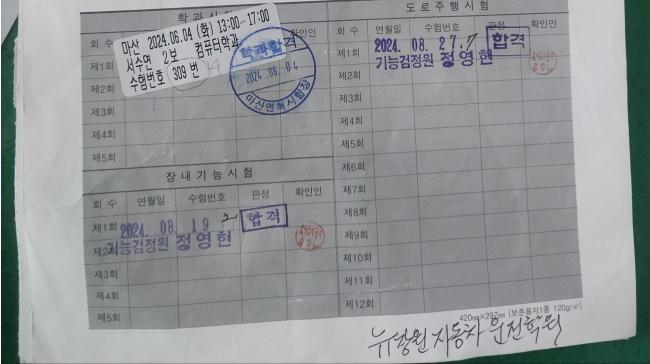 학과시험
회 수
확인인
제1회
제2회
제3회
제4회
제5회
마산 2024.06.04 (화) 13:00~17:00
서수연 2보 컴퓨터학과
수험번호 309 번
학과합격
2024. 06. 04
마산면허시험장
장내기능시험
회 수 연월일 수험번호 판정 확인인
제1회 2024. 08. 19 2 합격
제2회 기능검정원 정영현
제3회
제4회
제5회
도로주행시험
회 수 연월일 수험번호 판정 확인인
제1회 2024. 08. 27. 7 합격
제2회 기능검정원 정영현
제3회
제4회
제5회
제6회
제7회
제8회
제9회
제10회
제11회
제12회
420㎜×297㎜ (보존용지1종 120g/㎡)
뉴창원 자동차 운전학원